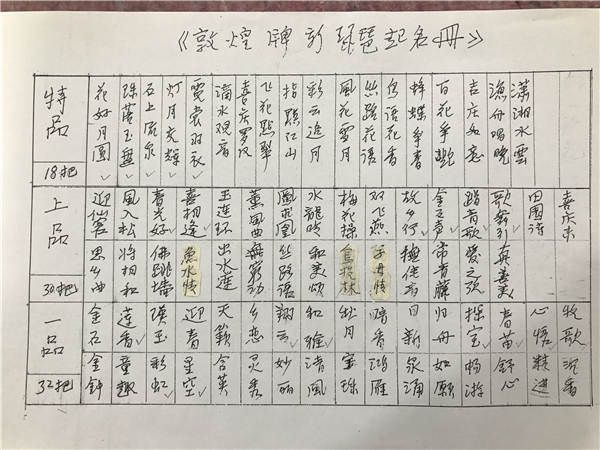 《敦煌牌新琵琶起名册》
特品
18把
花好月圆
珠落玉盘
石上流泉
灯月交辉
霓裳羽衣
滴水观音
喜庆罗汉
飞花点翠
指点江山
彩云追月
風花雪月
丝路花语
鸟语花香
蜂蝶争春
百花争艳
吉庆如意
渔舟唱晚
潇湘水雲
上品
30把
迎仙客
風入松
春光好
喜相逢
玉连环
薰風曲
鳳求凰
水龍吟
梅花操
双飞燕
故乡行
金玉声
踏青歌
田園诗
喜庆来
思乡曲
将相和
佛跳墙
魚水情
出水莲
無窮动
丝路语
和美颂
鳥投林
子母情
常青藤
爱之弦
真善美
一品
32把
金石
莲香
瑛玉
迎春
天籁
乡恋
翔云
和雅
秋月
暗香
日新
归舟
探宝
春苗
心悟
牧歌
金钟
童趣
彩虹
星空
含英
灵秀
妙丽
清風
宝珠
鸿雁
泉涌
如願
畅游
舒心
精進
沉香